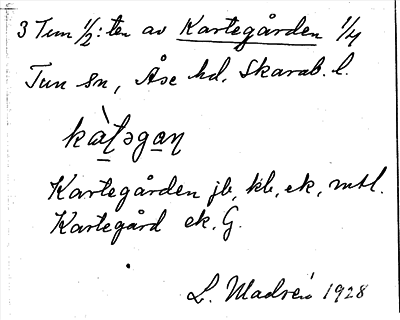 3 Tun 1/2:ten av Kartegården 1/4
Tun sn, Åse hd, Skarab. l.
Kartegården jb, kb, ek, mtl.
Kartegård ek. G.
L. Madsén 1928